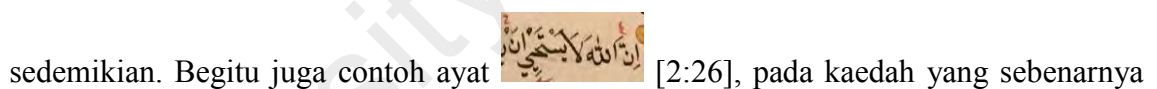 sedemikian. Begitu juga contoh ayat اِنَّ اللّٰهَ لَا يَسْتَحْيٖ اَنْ [2:26], pada kaedah yang sebenarnya